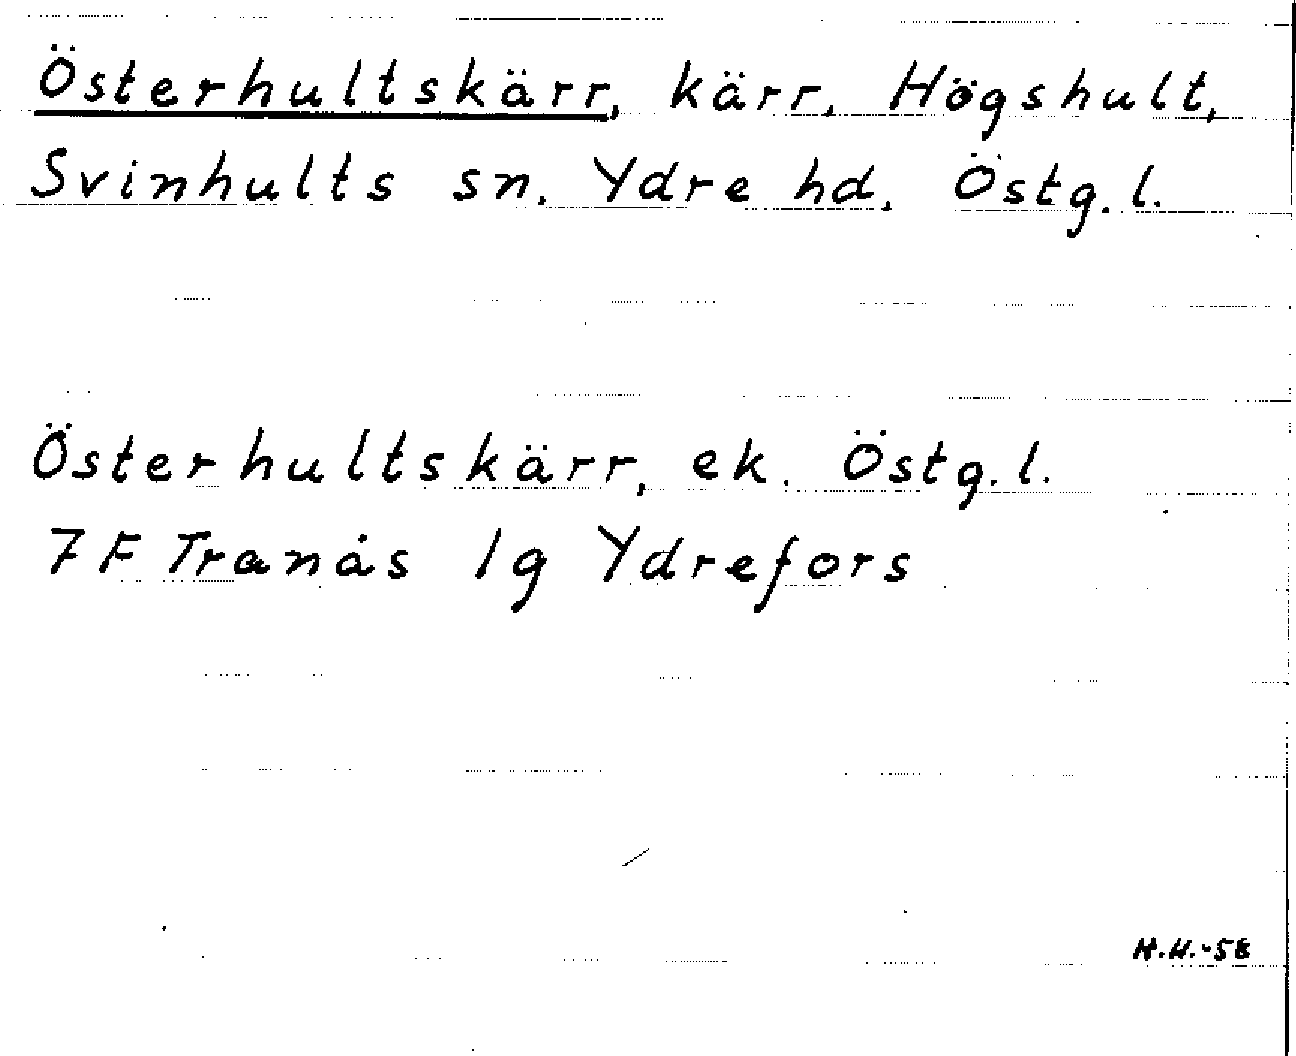 Österhultskärr, kärr, Högshult,
Svinhults sn, Ydre hd, Östg. l.
Österhultskärr, ek. Östg. l.
7 F Tranås 1g Ydrefors
H.H.-58